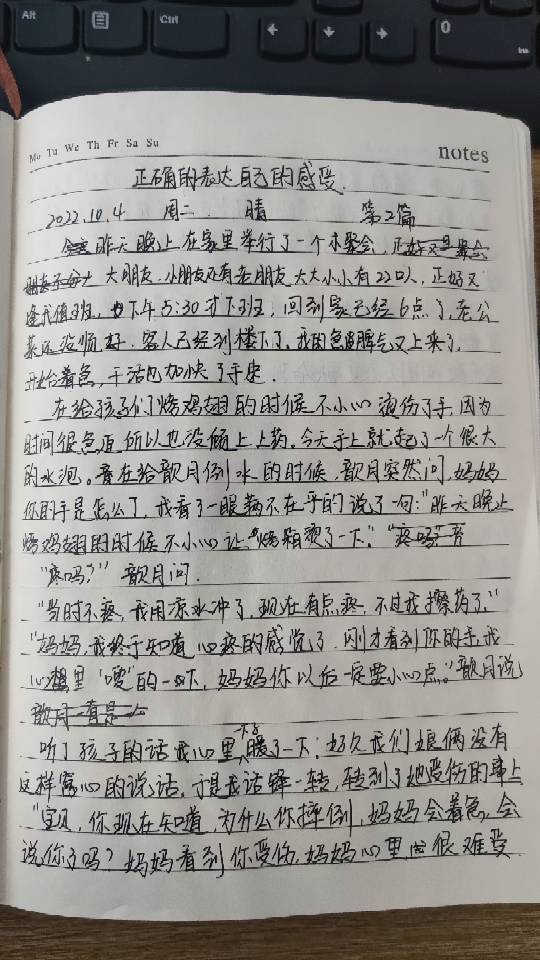 Alt
Ctrl
0
Ins
Mo Tu We Th Fr Sa Su
notes
正确的表达自己的感受.
2022.10.4 周二. 晴 第2篇
昨天晚上在家里举行了一个小聚会,
大朋友.小朋友还有老朋友大大小小有22口人,正好又
逢我值班,下午5:30才下班,回到家已经6点了,老公
菜还没顺好.客人已经到楼下了.我的急脾气又上来了,
开始着急,干活也加快了手速.
在给孩子们烤鸡翅的时候不小心烫伤了手,因为
时间很急迫所以也没顾上上药。今天手上就起了一个很大
的水泡。在给歆月倒水的时候,歆月突然问,妈妈
你的手是怎么了,我看了一眼满不在乎的说了句:“昨天晚上
烤鸡翅的时候不小心让烤箱烫了一下.”
“疼吗?” 歆月问.
“当时不疼,我用凉水冲了,现在有点疼,不过我擦药了,”
“妈妈,我终于知道心疼的感觉了,刚才看到你的手,我
心里“嗖”的一下,妈妈你以后一定要小心点。”歆月说
听了孩子的话我心里暖了一下;好久我们娘俩没有
这样窝心的说话,于是我话锋一转,转到了她受伤的事上
“宝贝,你现在知道,为什么你摔倒,妈妈会着急,会
说你了吗?妈妈看到你受伤,妈妈心里也很难受